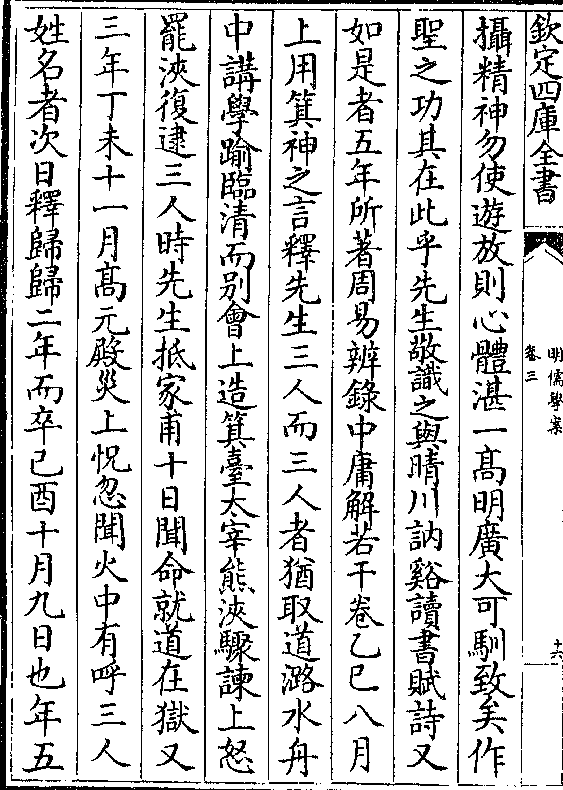 欽定四庫全書
明儒學案
卷三
十六
攝精神勿使遊放則心體湛一髙明廣大可馴致矣作
聖之功其在此乎先生敬識之與晴川訥谿讀書賦詩又
如是者五年所著周易辨錄中庸解若干卷乙巳八月
上用箕神之言釋先生三人而三人者猶取道潞水舟
中講學踰臨清而别會上造箕臺太宰熊浹驟諫上怒
罷浹復逮三人時先生抵家甫十日聞命就道在獄又
三年丁未十一月髙元殿災上怳忽聞火中有呼三人
姓名者次日釋歸歸二年而卒己酉十月九日也年五